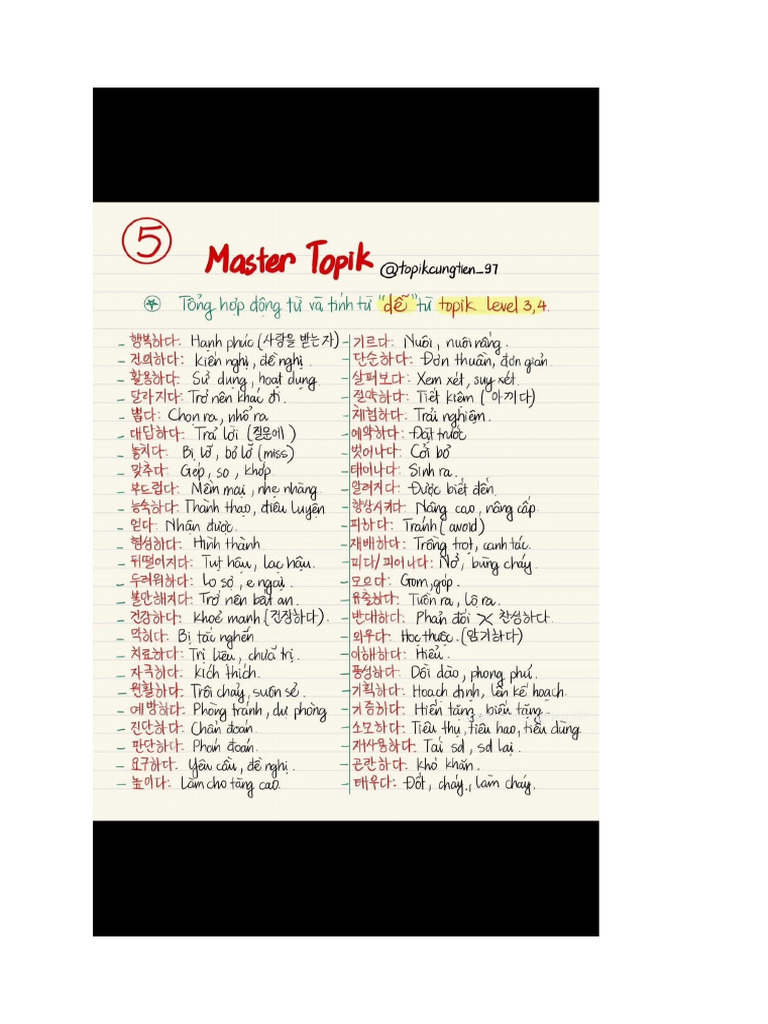 5
Master Topik @topikcungtien_97
Tổng hợp động từ và tính từ "dễ" từ topik level 3,4.
- 행복하다: Hạnh phúc (사랑을 받는 자)
- 건의하다: kiến nghị, đề nghị.
- 활용하다: Sử dụng, hoạt dụng
- 달라지다: Trở nên khác đi.
- 뽑다: Chọn ra, nhổ ra
- 대답하다: Trả lời (질문에)
- 놓치다: Bị lỡ, bỏ lỡ (miss)
- 맞추다: Ghép, so, khớp.
- 부드럽다: Mềm mại, nhẹ nhàng.
- 능숙하다: Thành thạo, điêu luyện
- 얻다: Nhận được.
- 형성하다: Hình thành
- 뒤떨어지다: Tụt hậu, lạc hậu.
- 두려워하다: Lo sợ, e ngại.
- 불안해지다: Trở nên bất an.
- 건강하다: Khoẻ mạnh (긴장하다).
- 막히다: Bị tắc nghẽn
- 치료하다: Trị liệu, chữa trị.
- 자극하다: kích thích.
- 원활하다: Trôi chảy, suôn sẻ.
- 예방하다: Phòng tránh, dự phòng
- 진단하다: Chẩn đoán.
- 판단하다: Phán đoán.
- 요구하다: Yêu cầu, đề nghị.
- 높이다: Làm cho tăng cao.
- 기르다: Nuôi, nuôi nấng.
- 단순하다: Đơn thuần, đơn giản.
- 살펴보다: Xem xét, suy xét.
- 절약하다: Tiết kiệm (아끼다)
- 체험하다: Trải nghiệm.
- 예약하다: Đặt trước
- 벗어나다: Cởi bỏ
- 태어나다: Sinh ra.
- 알려지다: Được biết đến.
- 향상시키다: Nâng cao, nâng cấp
- 피하다: Tránh (avoid)
- 재배하다: Trồng trọt, canh tác.
- 피다/피어나다: Nở, bùng cháy.
- 모으다: Gom, góp.
- 유출하다: Tuồn ra, lộ ra.
- 반대하다: Phản đối X 찬성하다.
- 외우다: Học thuộc. (암기하다)
- 이해하다: Hiểu.
- 풍성하다: Dồi dào, phong phú.
- 기획하다: Hoạch định, lên kế hoạch.
- 기증하다: Hiến tặng, biếu tặng.
- 소모하다: Tiêu thụ, tiêu hao, tiêu dùng
- 재사용하다: Tái sd, sd lại.
- 곤란하다: Khó khăn.
- 태우다: Đốt, cháy, làm cháy.